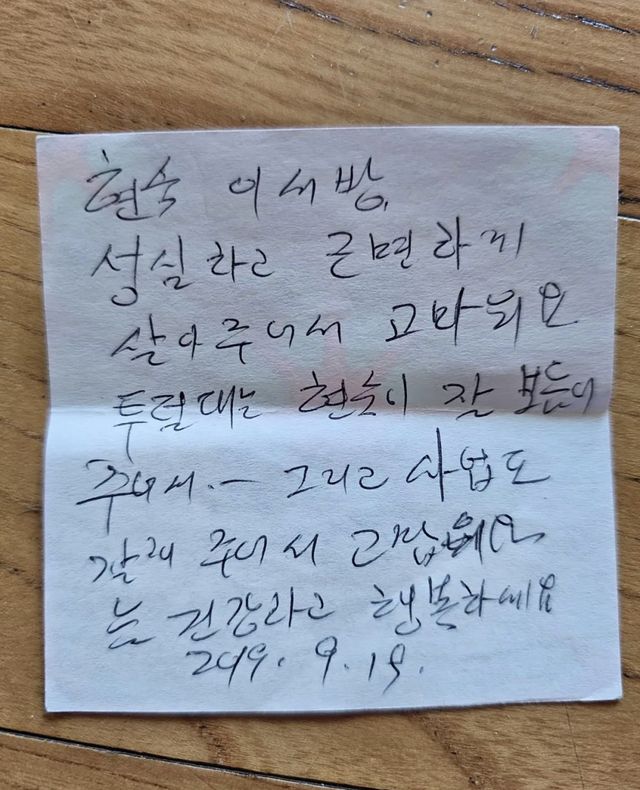 현숙 이서방,
성심하고 근면하게
살아주어서 고마워요
투덜대는 현숙이 잘 보듬어
주어서.— 그리고 사업도
잘해 주어서
늘 건강하고 행복하세요
2019. 9. 19.